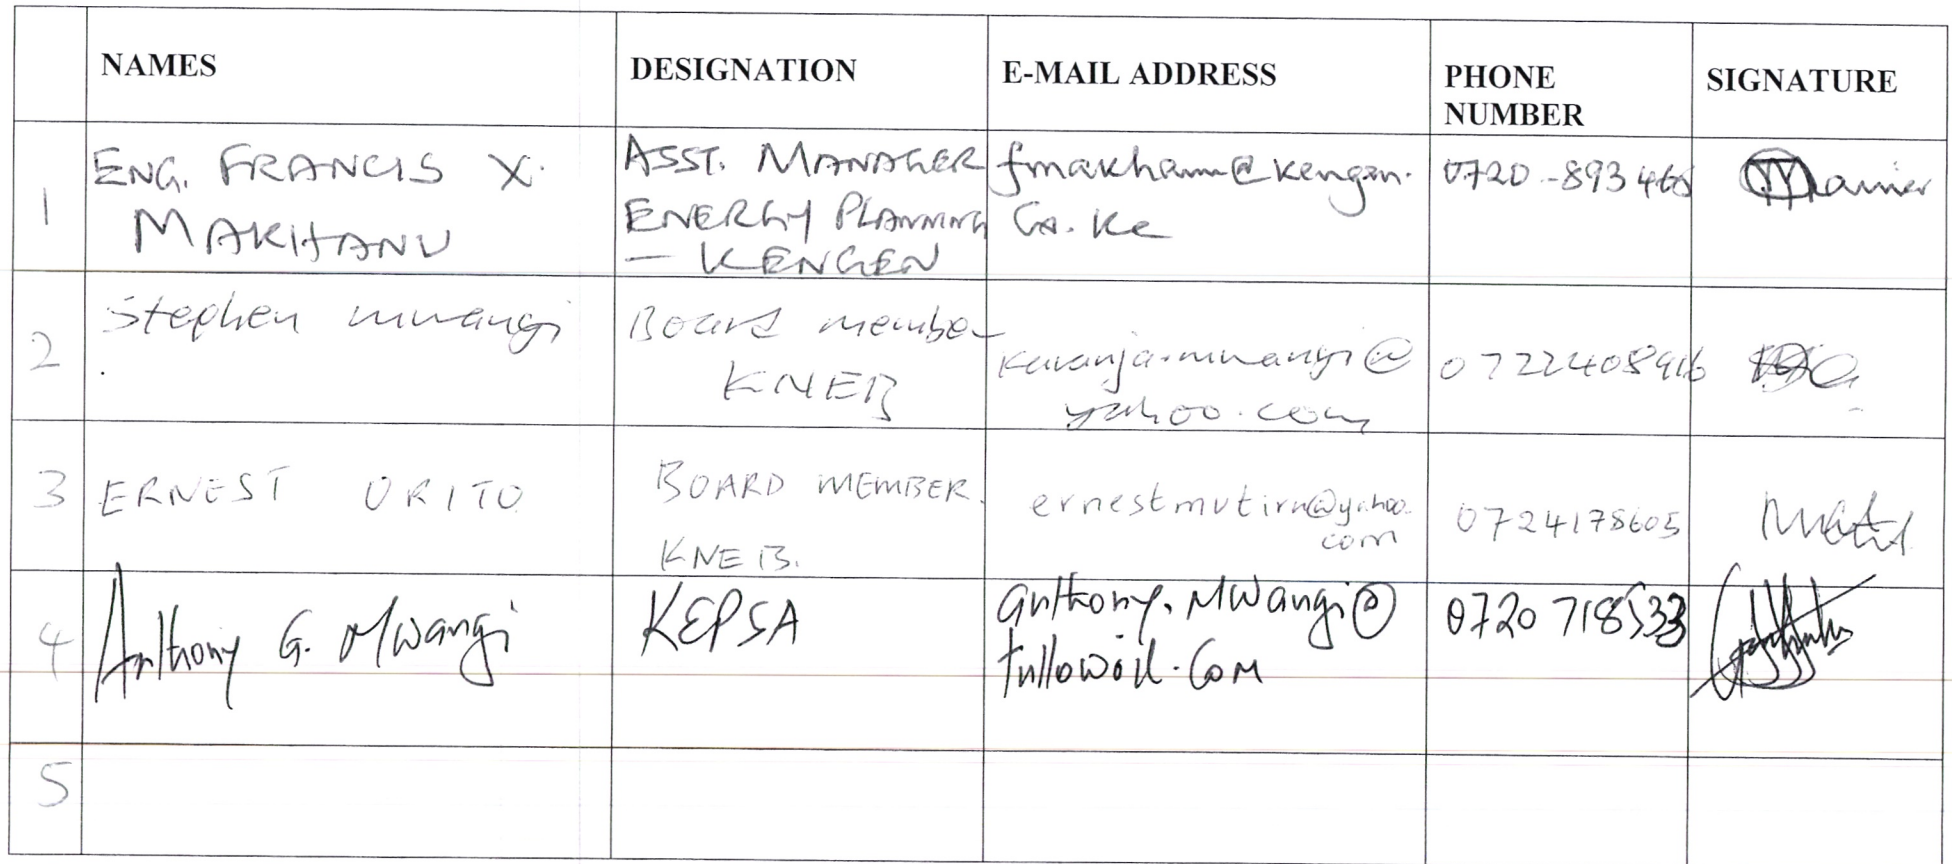 NAMES
DESIGNATION
E-MAIL ADDRESS
PHONE
NUMBER
SIGNATURE
1
ENG. FRANCIS X.
MAKHANU
ASST. MANAGER
ENERGY PLANNING
– KENGEN
fmakhanu@kengen.
Co.ke
0720-893466
2
Stephen mwangi
Board member
KNEB
karanja.mwangi@
yahoo.com
0722408916
3
ERNEST ORITO
BOARD MEMBER.
KNEB.
ernestmutiru@yahoo.
com
0724178605
4
Anthony G. Mwangi
KEPSA
anthony.Mwangi@
tullowoil.Com
0720 718533
5